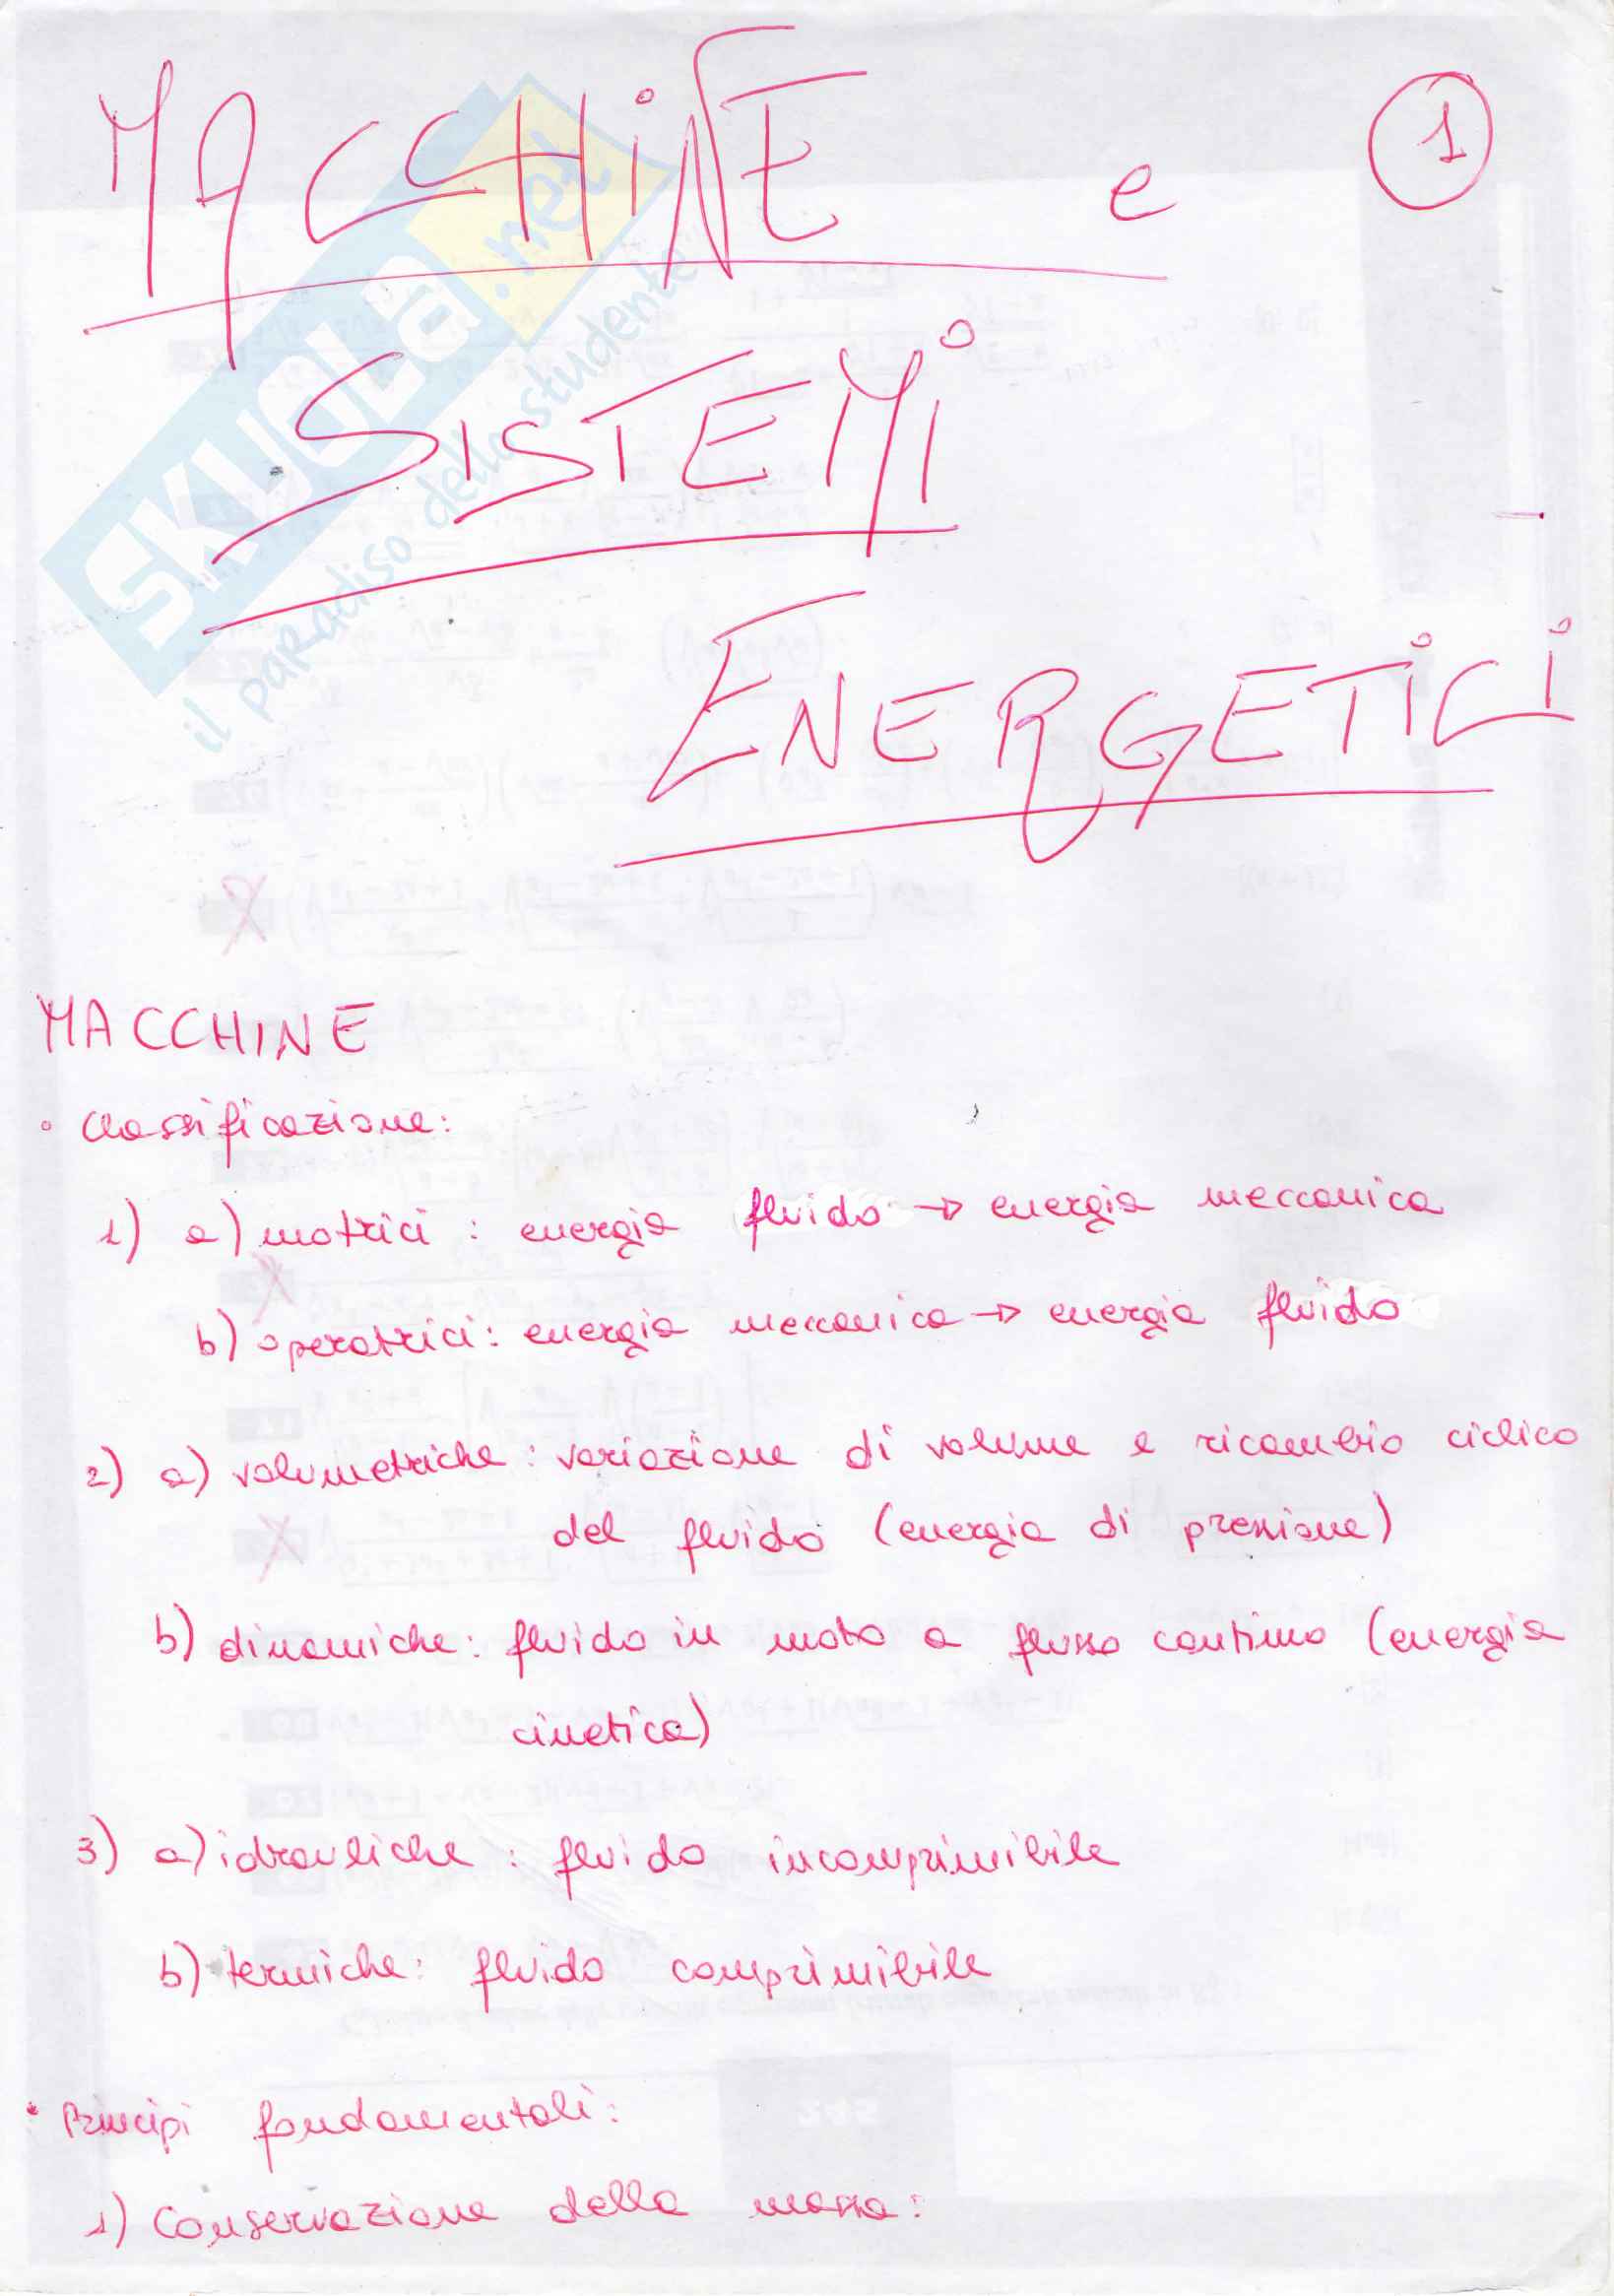 MACCHINE e
1
SISTEMI
ENERGETICI
SKUOLA.net
il paradiso dello studente
MACCHINE
• Classificazione:
1) a) motrici : energia fluido → energia meccanica
b) operatrici: energia meccanica → energia fluido
2) a) volumetriche : variazione di volume e ricambio ciclico
del fluido (energia di pressione)
b) dinamiche: fluido in moto a flusso continuo (energia
cinetica)
3) a) idrauliche : fluido incomprimibile
b) termiche: fluido comprimibile
• Principi fondamentali:
1) Conservazione della massa: